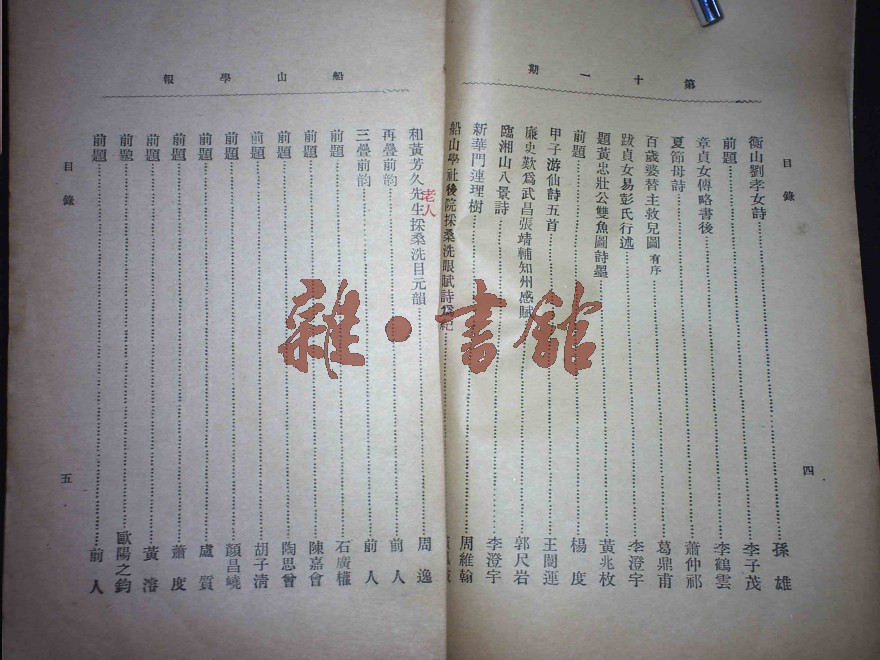 第十一期
目錄
衡山劉孝女詩……孫雄
前題……李子茂
章貞女傳略書後……李鶴雲
夏節母詩……蕭仲祁
百歲婆替主救兒圖 有序……葛鼎甫
跋貞女易彭氏行述……李澄宇
題黃忠壯公雙魚圖詩墨……黃兆枚
前題……楊度
甲子游仙詩五首……王闓運
廉史歎爲武昌張靖輔知州感賦……郭尺岩
臨湘山八景詩……李澄宇
新華門連理樹……周維翰
船山學社後院採桑洗眼賦詩爲紀……
四
船山學報
和黃芳久先生採桑洗目元韻……周逸
老人
再疊前韵……前人
三疊前韵……前人
前題……石廣權
前題……陳嘉會
前題……陶思曾
前題……胡子清
前題……顏昌嶢
前題……盧質
前題……蕭度
前題……黃溶
前題……歐陽之鈞
前題……前人
目錄
五
雜·書館